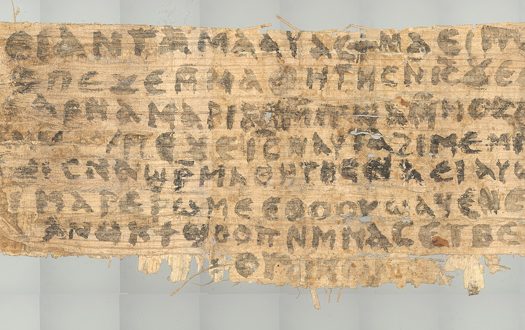 ⲉⲓⲁⲛⲧⲁⲙⲁⲁⲩⲁⲥϯⲛⲁⲉⲓⲡ
ⲥⲡⲉϫⲉⲙⲙⲁⲑⲏⲧⲏⲥⲛⲓ̅ⲥ̅ϫⲉ
ⲁⲣⲛⲁⲙⲁⲣⲓⲁⲙⲙⲡϣⲁⲙⲙⲟⲥ
ⲡⲉϫⲉⲓ̅ⲥ̅ⲛⲁⲩⲧⲁϩⲓⲙⲉⲙ
ⲥⲛⲁϣⲣⲙⲁⲑⲏⲧⲏⲥⲛⲁⲉⲓⲁⲩⲱ
ⲓⲙⲁⲣⲉⲣⲱⲙⲉⲉⲑⲟⲟⲩϣⲁϥⲉⲛⲉ
ⲁⲛⲟⲕϯϣⲟⲟⲡⲛⲙⲙⲁⲥⲉⲧⲃⲉ